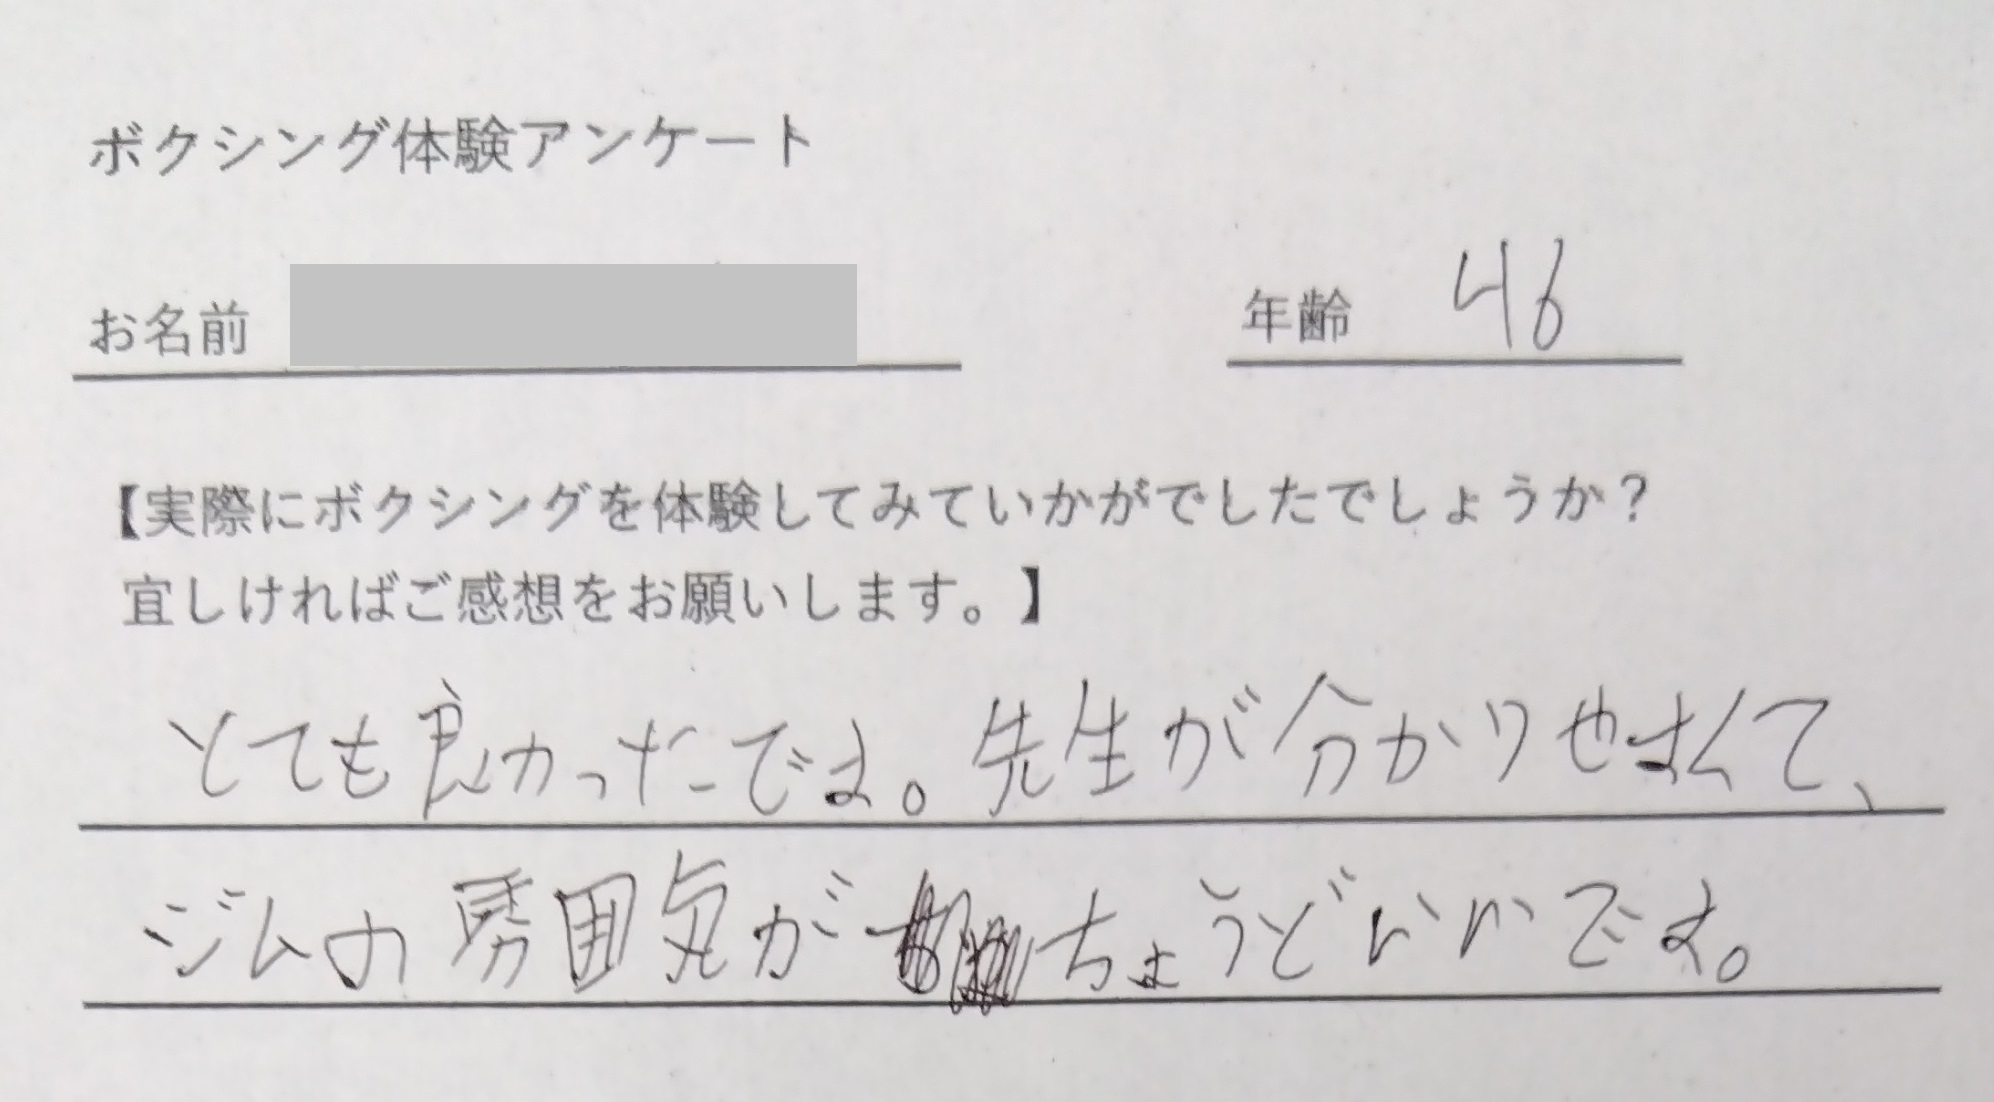 ボクシング体験アンケート
お名前
年齢 46
【実際にボクシングを体験してみていかがでしたでしょうか？
宜しければご感想をお願いします。】
とても良かったです。先生が分かりやすくて、
ジムの雰囲気がちょうどいいです。